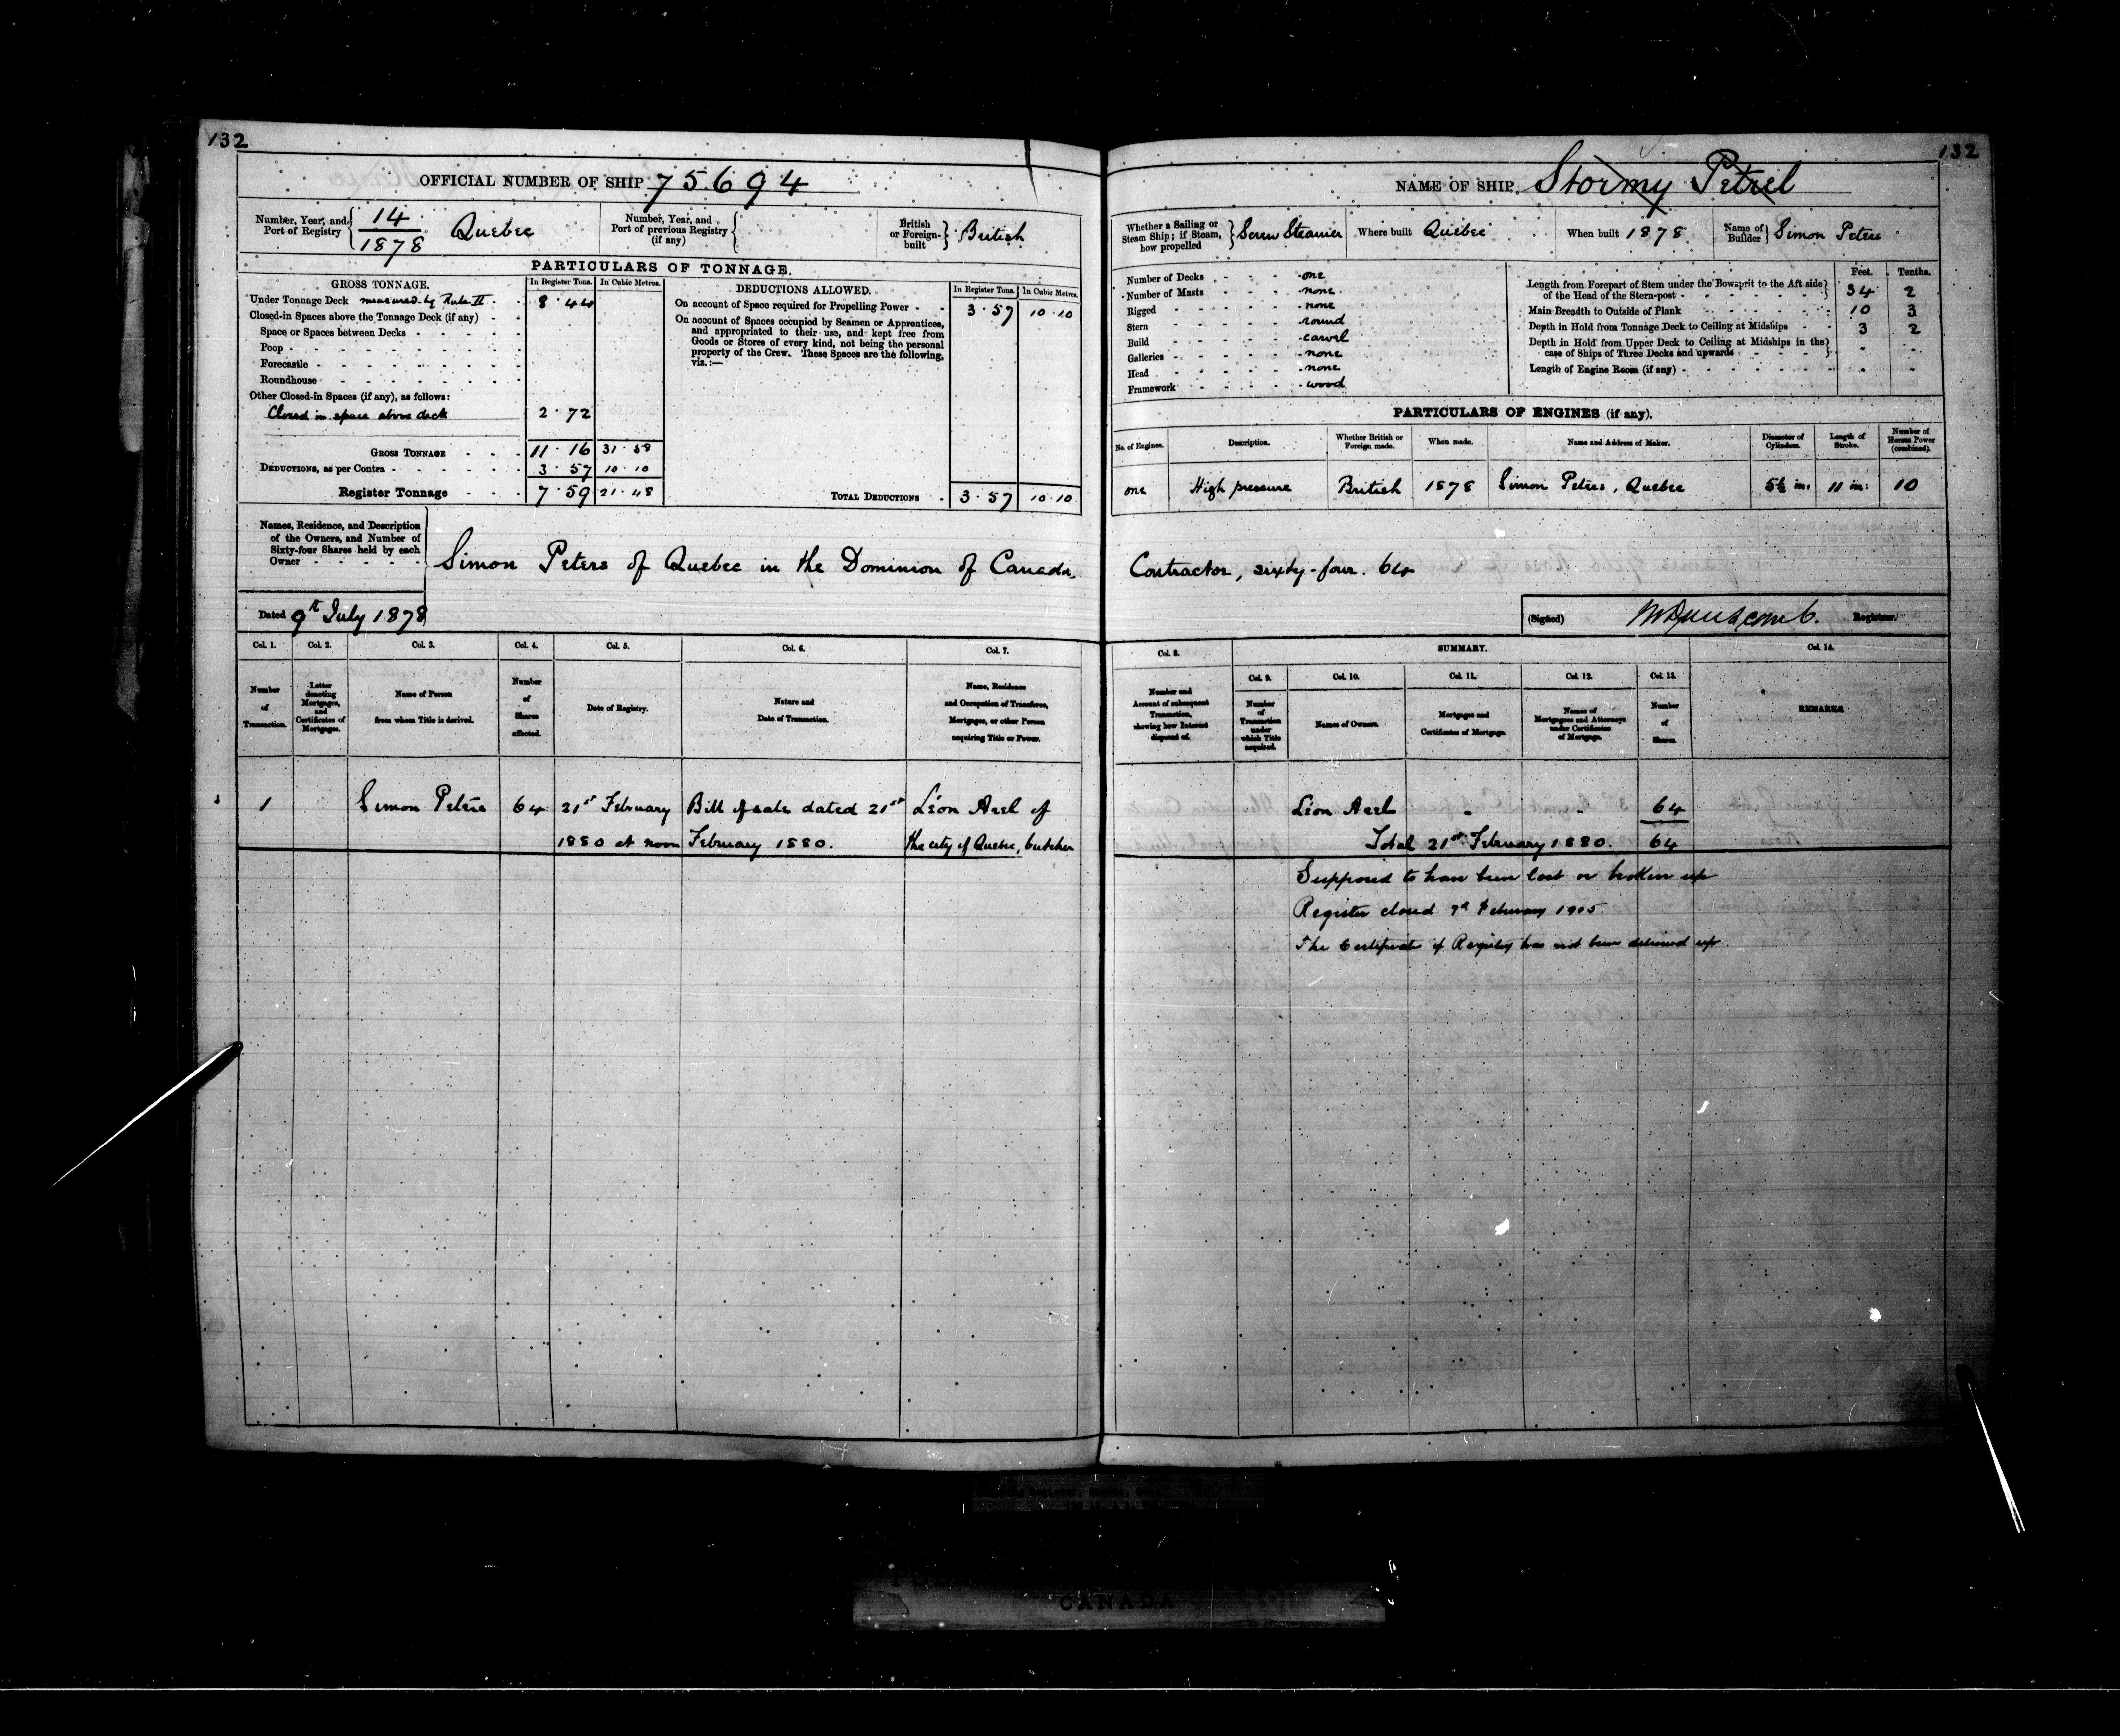 132
OFFICIAL NUMBER OF SHIP 75694
Number, Year, and Port of Registry 14/1878 Quebec
Number, Year, and Port of previous Registry (if any)
British or Foreign-built British
PARTICULARS OF TONNAGE.
GROSS TONNAGE.
In Register Tons. In Cubic Metres.
Under Tonnage Deck measured by Rule II 8.44
Closed-in Spaces above the Tonnage Deck (if any)
Space or Spaces between Decks
Poop
Forecastle
Roundhouse
Other Closed-in Spaces (if any), as follows:
Closed in space above deck 2.72
GROSS TONNAGE 11.16 31.58
DEDUCTIONS, as per Contra 3.57 10.10
Register Tonnage 7.59 21.48
DEDUCTIONS ALLOWED.
In Register Tons. In Cubic Metres.
On account of Space required for Propelling Power 3.57 10.10
On account of Spaces occupied by Seamen or Apprentices,
and appropriated to their use, and kept free from
Goods or Stores of every kind, not being the personal
property of the Crew. These Spaces are the following,
viz.:—
TOTAL DEDUCTIONS 3.57 10.10
Names, Residence, and Description
of the Owners, and Number of
Sixty-four Shares held by each
Owner
Simon Peters of Quebec in the Dominion of Canada,
Dated 9th July 1878
Col. 1. Col. 2. Col. 3. Col. 4. Col. 5. Col. 6. Col. 7.
Number of Transaction.
Letter denoting Mortgages, and Certificates of Mortgages.
Name of Person from whom Title is derived.
Number of Shares affected.
Date of Registry.
Nature and Date of Transaction.
Name, Residence and Occupation of Transferee, Mortgagee, or other Person acquiring Title or Power.
1 Simon Peters 64 21st February Bill of sale dated 21st Léon Arel of
1880 at noon February 1880. the city of Quebec, butcher
132
NAME OF SHIP Stormy Petrel
Whether a Sailing or Steam Ship; if Steam, how propelled Screw Steamer
Where built Quebec
When built 1878
Name of Builder Simon Peters
Number of Decks one
Number of Masts none
Rigged none
Stern round
Build carvel
Galleries none
Head none
Framework wood
Feet. Tenths.
Length from Forepart of Stem under the Bowsprit to the Aft side
of the Head of the Stern-post 34 2
Main Breadth to Outside of Plank 10 3
Depth in Hold from Tonnage Deck to Ceiling at Midships 3 2
Depth in Hold from Upper Deck to Ceiling at Midships in the
case of Ships of Three Decks and upwards
Length of Engine Room (if any)
PARTICULARS OF ENGINES (if any).
No. of Engines. Description. Whether British or Foreign made. When made. Name and Address of Maker. Diameter of Cylinders. Length of Stroke. Number of Horses Power (combined).
one High pressure British 1878 Simon Peters, Quebec 5½ in: 11 in: 10
Contractor, sixty-four. 64
(Signed) Registrar.
Col. 8. SUMMARY. Col. 14.
Col. 9. Col. 10. Col. 11. Col. 12. Col. 13.
Number and Account of subsequent Transaction, showing how Interest disposed of.
Number of Transaction under which Title acquired.
Names of Owners.
Mortgages and Certificates of Mortgage.
Names of Mortgagees and Attorneys under Certificates of Mortgage.
Number of Shares.
REMARKS.
Léon Arel 64
Total 21st February 1880. 64
Supposed to have been lost or broken up
Register closed 7th February 1905.
The Certificate of Registry has not been delivered up.
CANADA